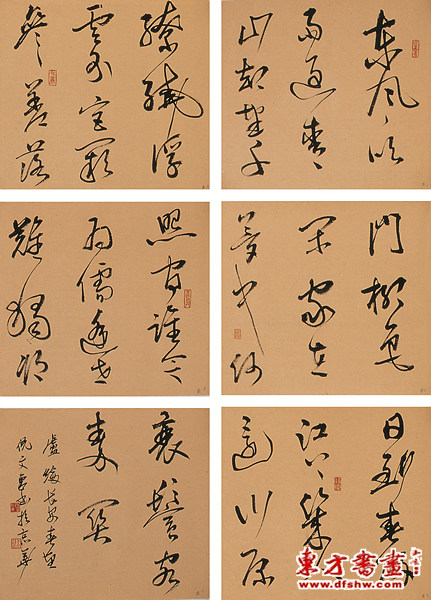 東風吹
雨過青
山却望千
門柳色
閑家在
夢中何
日到春来
江上幾人
還川原
繚繞浮
雲外宮闕
參差落
照間誰念
為儒逢世
難獨將
衰鬢客
秦關
盧綸長安春望
倪文東書於京華
東方書畫